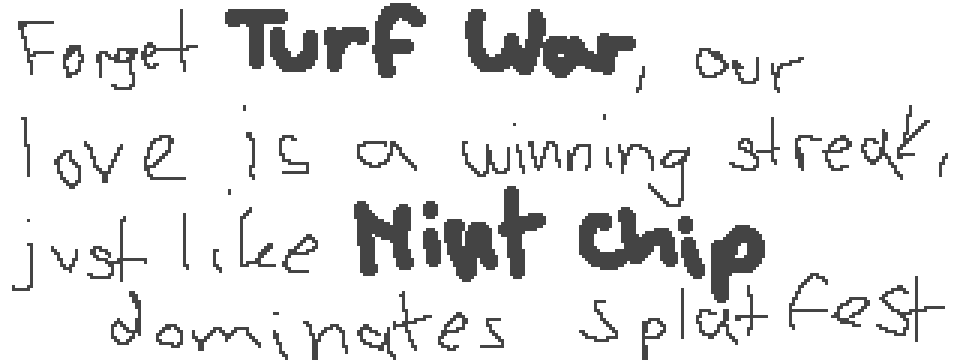 Forget Turf War, our
love is a winning streak,
just like Mint Chip
dominates splatfest